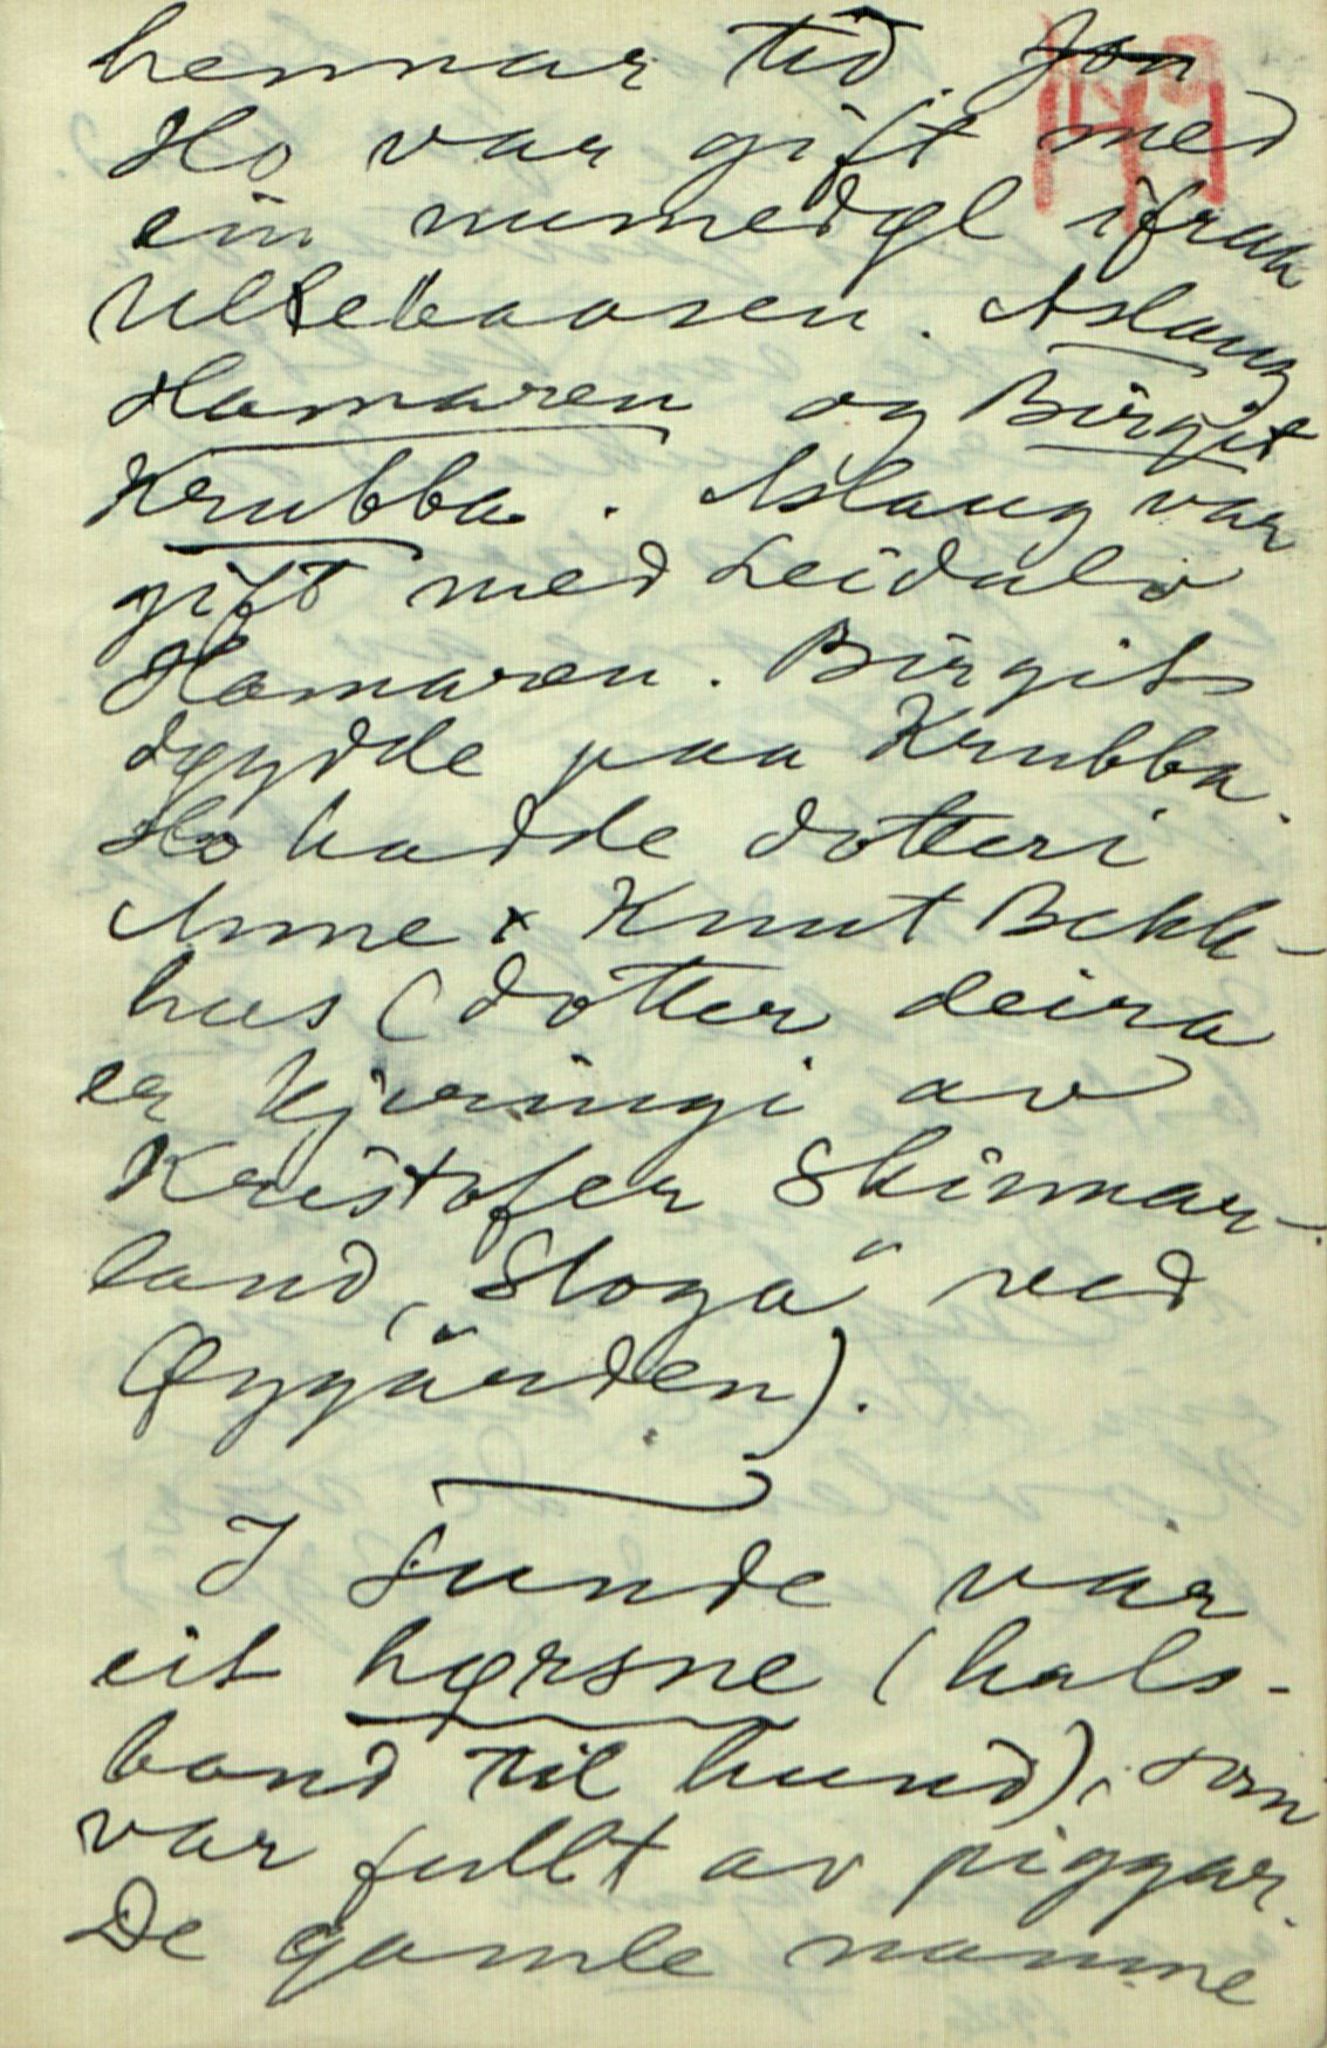 hennar tid. Jon
Ho var gift med
ein numedøl ifraa
Ultebaasen. Aslaug
Hamaren og Birgit
Krubba. Aslaug var
gift med Leidulv
Hamaren. Birgit
døydde paa Krubba.
Ho hadde dotteri
Anne x Knut Bekk-
hus (dotter deira
er kjeringi av
Kristofer Skinnar-
land, "Sloga" ved
Øygården).
I Sunde var
eit hørsne (hals-
band til hund), som
var fullt av piggar.
De gamle namne